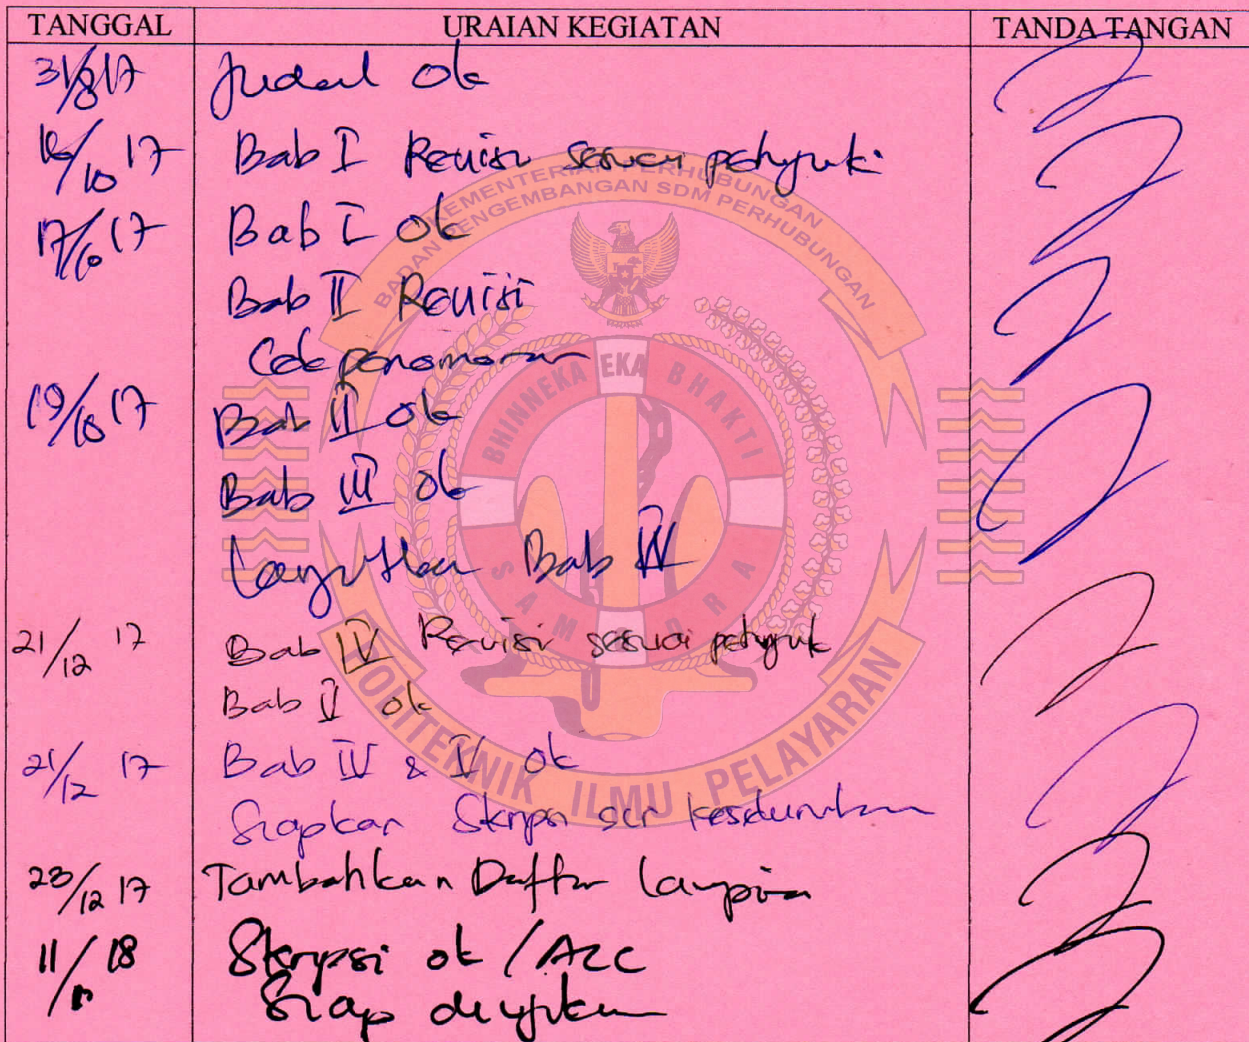 TANGGAL URAIAN KEGIATAN TANDA TANGAN
31/8 17 Judul Ok
16/10 17 Bab I Revisi sesuai petunjuk
17/10 17 Bab I Ok
Bab II Revisi
Cek penomoran
19/10 17 Bab II Ok
Bab III Ok
Lanjutkan Bab IV
21/12 17 Bab IV Revisi sesuai petunjuk
Bab V ok
21/12 17 Bab IV & V Ok
Siapkan Skripsi scr keseluruhan
23/12 17 Tambahkan Daftar lampiran
11/ 18 Skripsi ok / ACC
Siap diujikan
BADAN PENGEMBANGAN SDM PERHUBUNGAN
KEMENTERIAN PERHUBUNGAN
BHINNEKA EKA BHAKTI
SAMUDRA
POLITEKNIK ILMU PELAYARAN